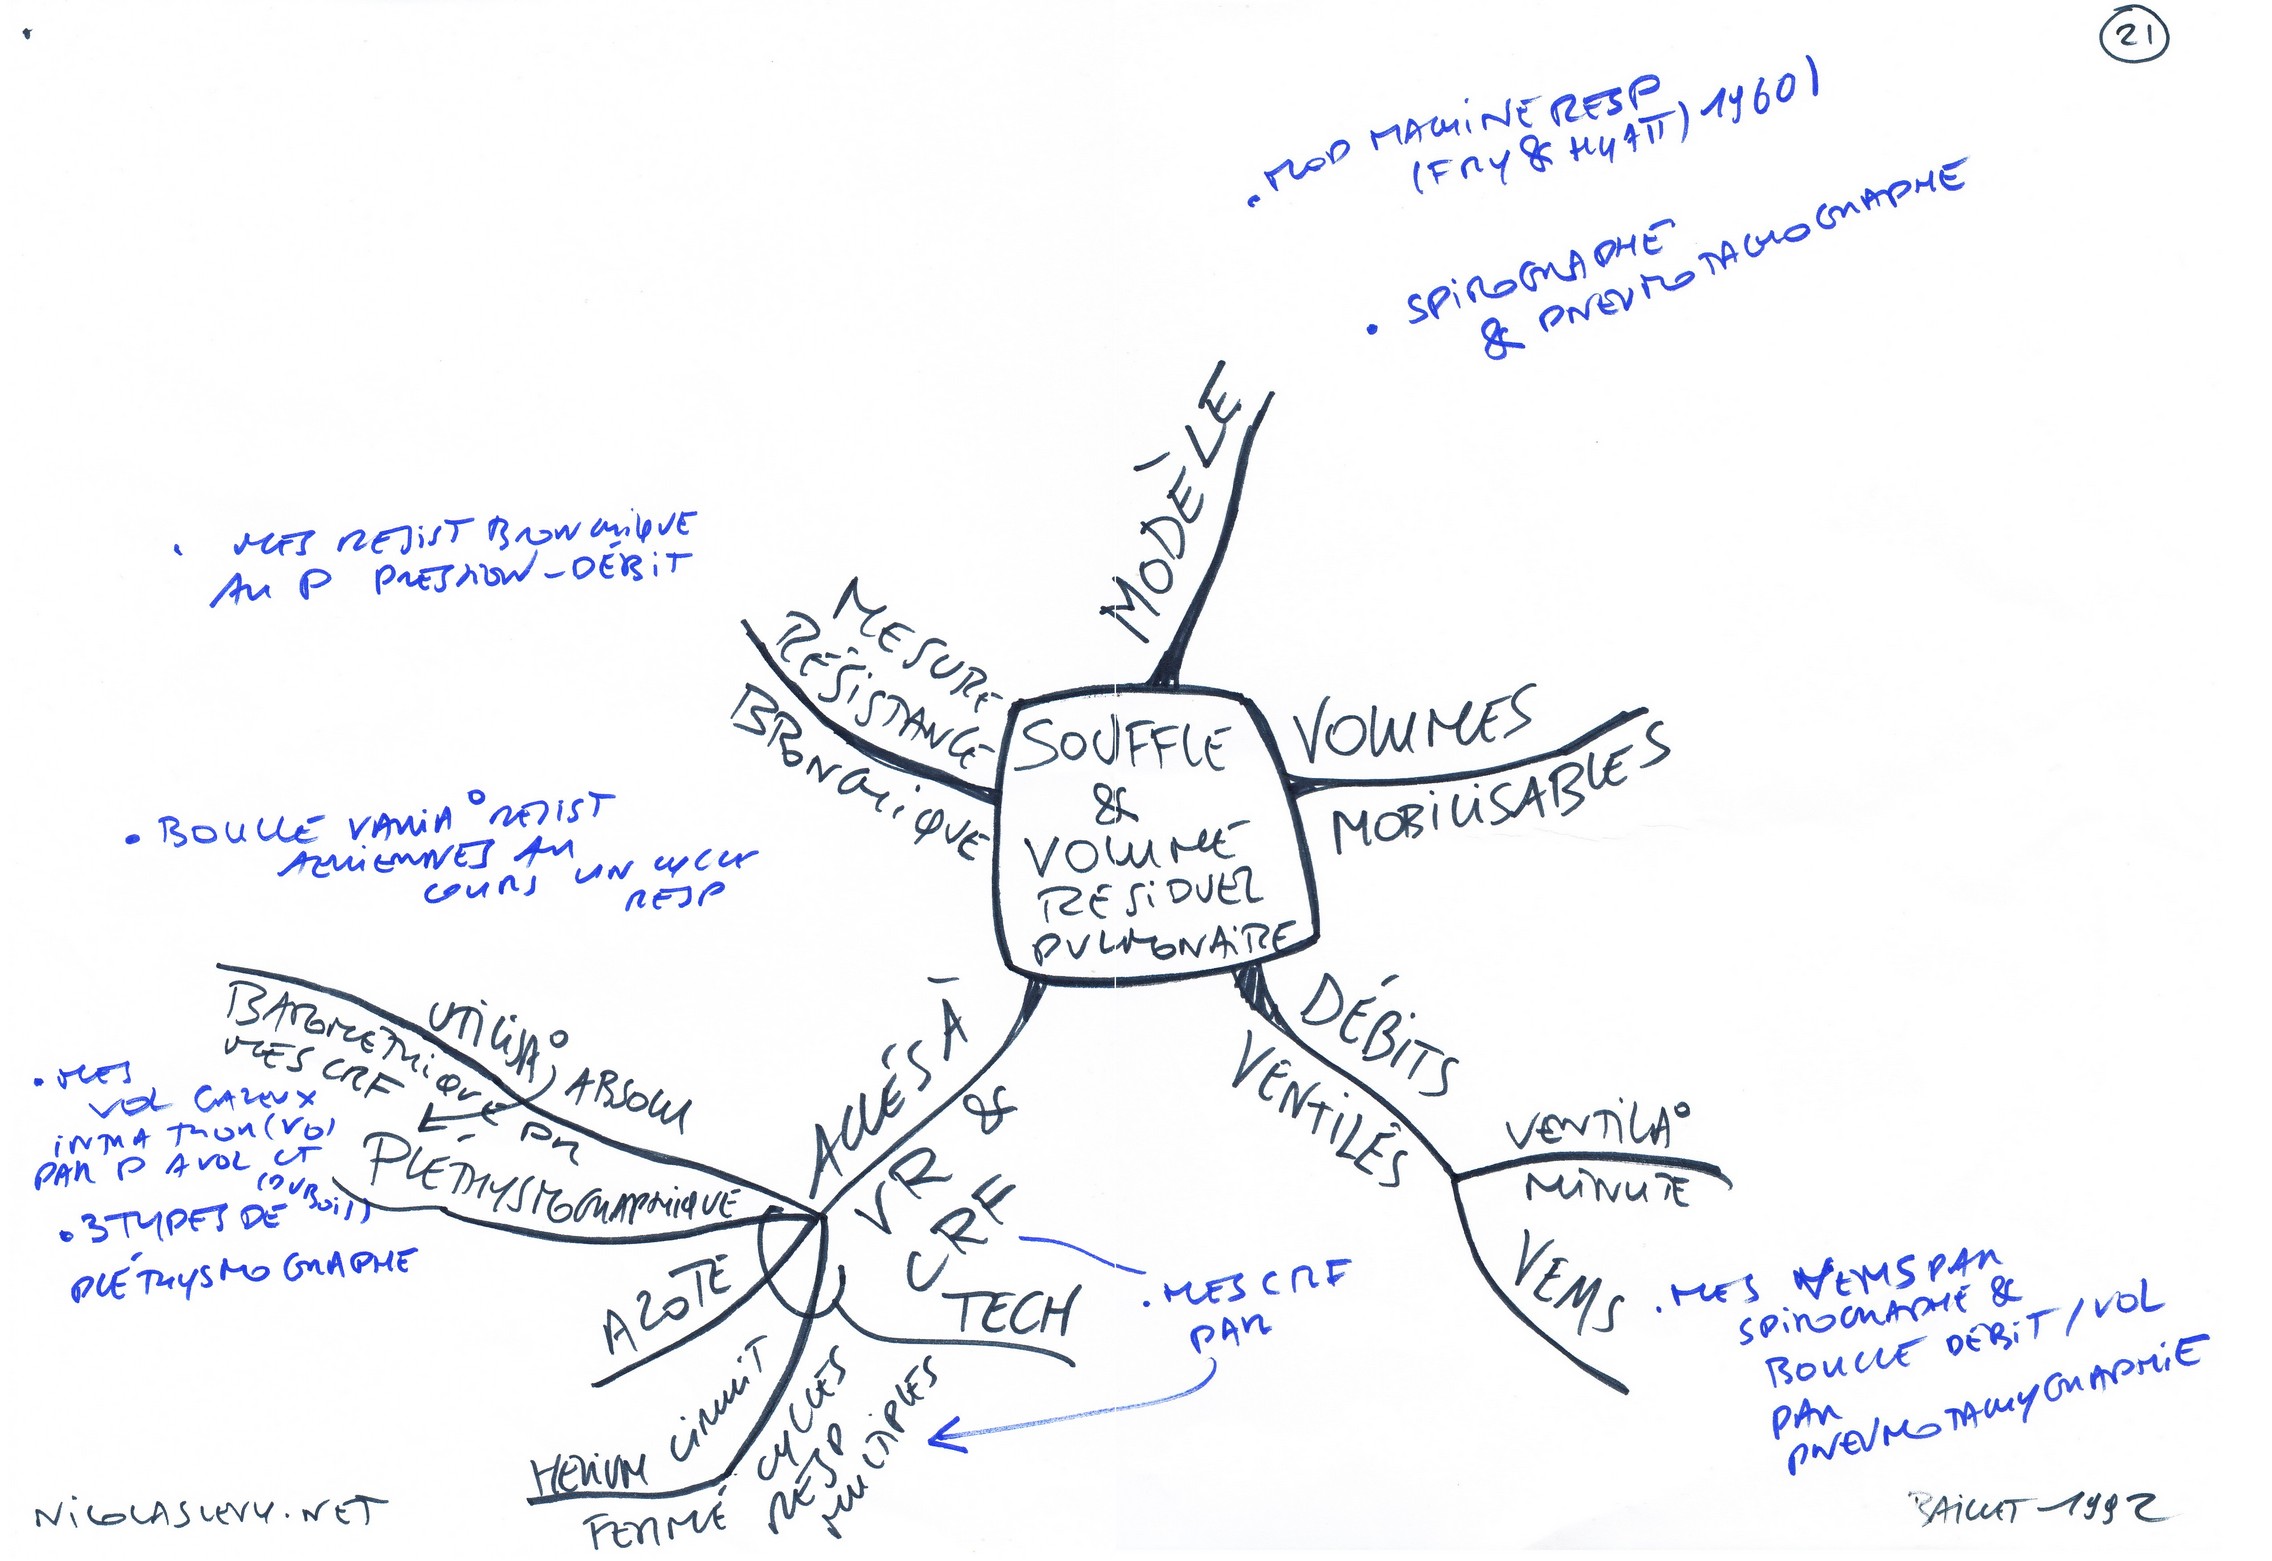 21
. MOD MACHINE RESP
(FRY & HYATT) 1960)
. SPIROGRAPHE
& PNEUMOTACHOGRAPHE
MODÈLE
. MES RESIST BRONCHIQUE
AU P PRESSION-DÉBIT
MESURE
RÉSISTANCE
BRONCHIQUE
SOUFFLE
&
VOLUME
RÉSIDUEL
PULMONAIRE
VOLUMES
MOBILISABLES
. BOUCLE VARIA° RESIST
AERIENNES AU
COURS UN CYCLE
RESP
DÉBITS
VENTILÉS
VENTILA°
MINUTE
VEMS
. MES VEMS PAR
SPIROGRAPHE &
BOUCLE DÉBIT / VOL
PAR
PNEUMOTACHYGRAPHIE
ACCÉS À
VR &
CRF
TECH
. MES CRF
PAR
UTILISA° ABSOLU
BAROMETRIQUE PR
MES CRF
PLÉTHYSMOGRAPHIQUE
. MES
VOL GAZEUX
INTRA THOR (VO)
PAR P A VOL CT
(DUBOIS)
. 3 TYPES DE
PLÉTHYSMOGRAPHE
AZOTE
HELIUM CIRCUIT
FERMÉ
CYCLES
RESP
MULTIPLES
NICOLASLEVY.NET
BAILLET-1992